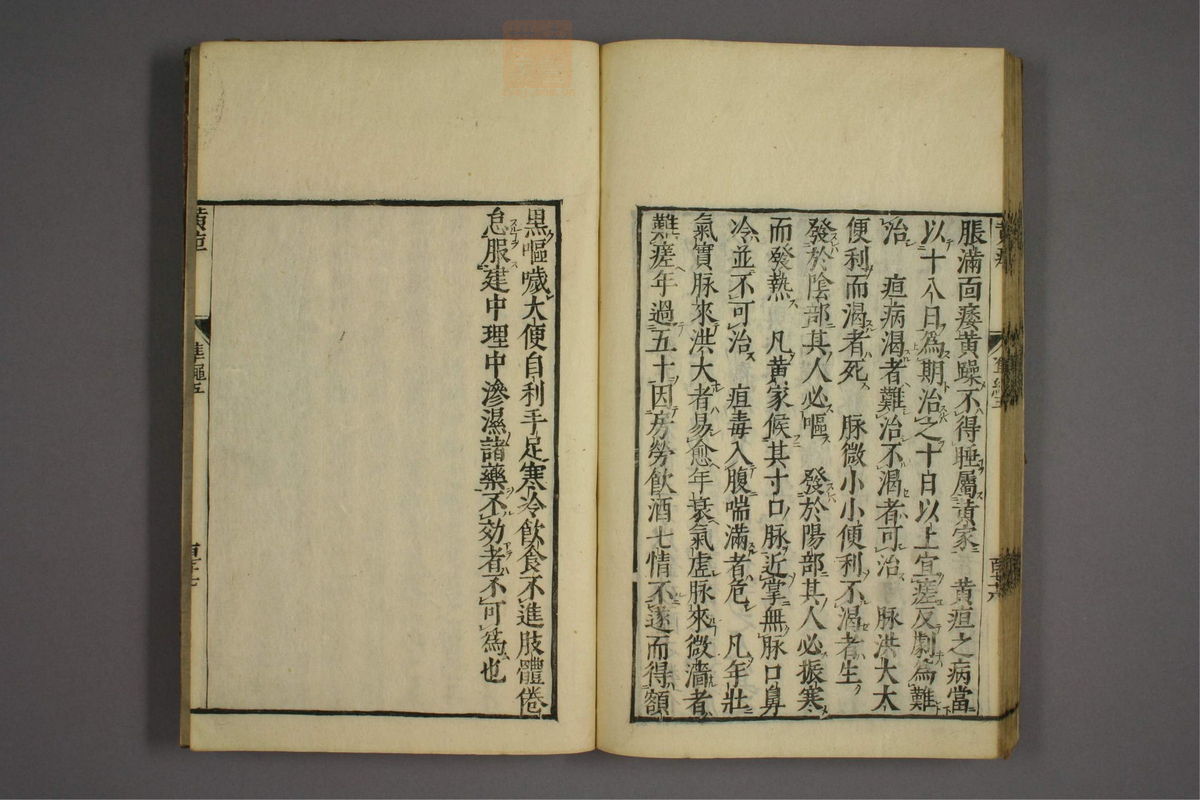 脹滿面痿黃躁不得睡屬黃家　黃疸之病當
以十八日爲期治之十日以上宜瘥反劇爲難
治　疸病渴者難治不渴者可治　脉洪大大
便利而渴者死　脉微小小便利不渴者生
發於陰部其人必嘔　發於陽部其人必振寒
而發熱　凡黃家候其寸口脉近掌無脉口鼻
冷並不可治　疸毒入腹喘滿者危　凡年壯
氣實脉來洪大者易愈年衰氣虛脉來微濇者
難瘥年過五十因房勞飮酒七情不遂而得額
黑嘔噦大便自利手足寒冷飮食不進肢體倦
怠服建中理中滲濕諸藥不効者不可爲也
黃疸
準繩五